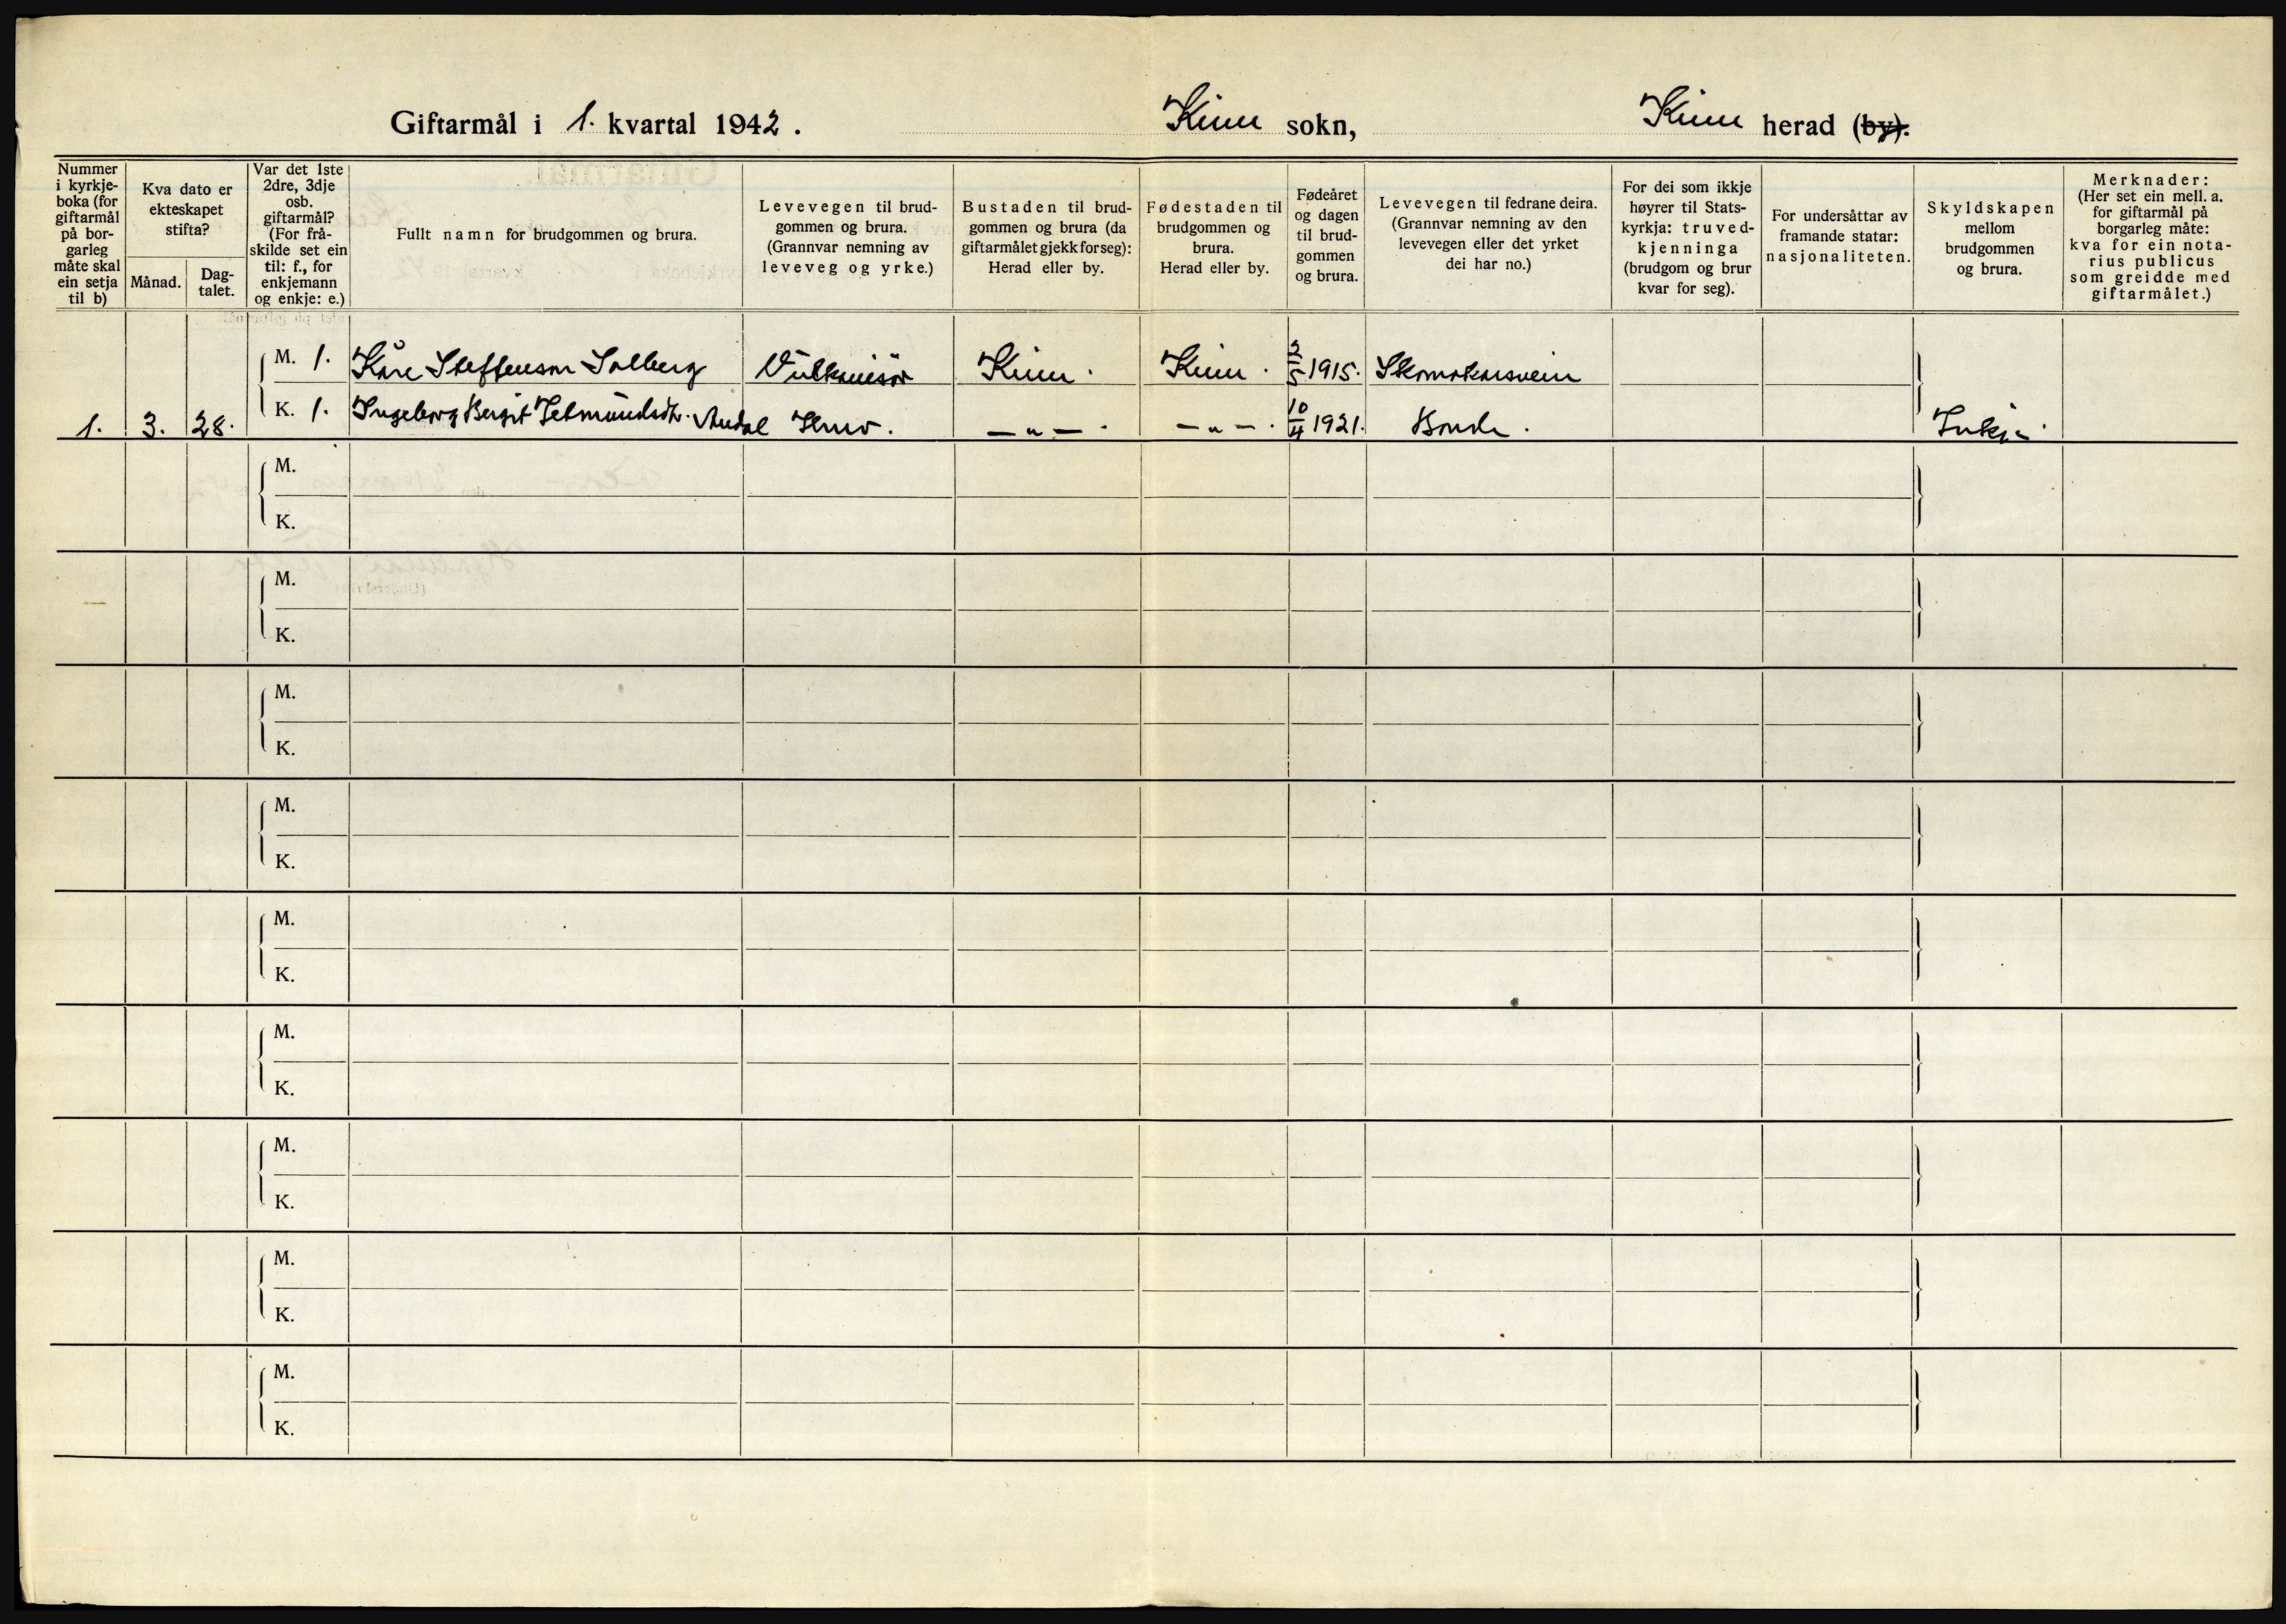 Giftarmål i 1. kvartal 1942. Kinn sokn, Kinn herad (by).
Nummer i kyrkje-boka (for giftarmål på bor-garleg måte skal ein setja til b)
Kva dato er ekteskapet stifta?
Månad.
Dag-talet.
Var det 1ste 2dre, 3dje osb. giftarmål? (For frå-skilde set ein til: f., for enkjemann og enkje: e.)
Fullt namn for brudgommen og brura.
Levevegen til brud-gommen og brura. (Grannvar nemning av leveveg og yrke.)
Bustaden til brud-gommen og brura (da giftarmålet gjekk for seg): Herad eller by.
Fødestaden til brudgommen og brura. Herad eller by.
Fødeåret og dagen til brud-gommen og brura.
Levevegen til fedrane deira. (Grannvar nemning av den levevegen eller det yrket dei har no.)
For dei som ikkje høyrer til Stats-kyrkja: truved-kjenninga (brudgom og brur kvar for seg).
For undersåttar av framande statar: nasjonaliteten.
Skyldskapen mellom brudgommen og brura.
Merknader: (Her set ein mell. a. for giftarmål på borgarleg måte: kva for ein nota-rius publicus som greidde med giftarmålet.)
M. 1. Kåre Steffenson Solberg Vulkanisør Kinn. Kinn. 2/5 1915. Skomakarsvein
1. 3. 28. K. 1. Ingeborg Bergit Jetmundsdtr. Andal Husv. —„—. —„—. 10/4 1921. Bonde. Inkje.
M.
K.
M.
K.
M.
K.
M.
K.
M.
K.
M.
K.
M.
K.
M.
K.
M.
K.